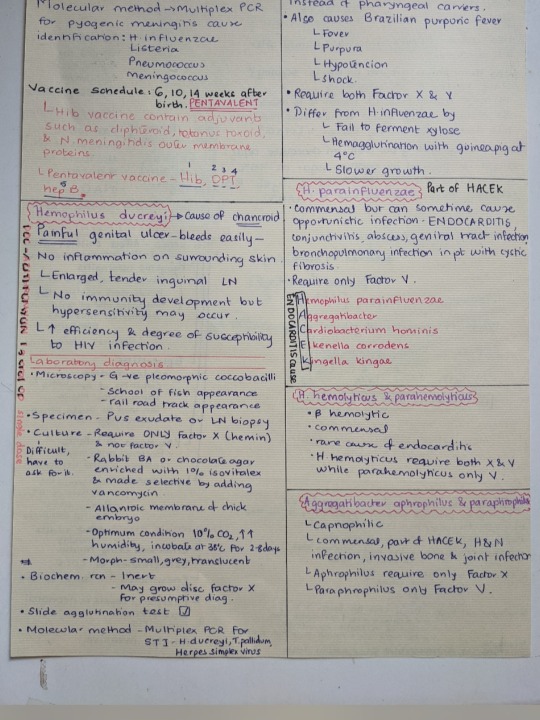 Molecular method → Multiplex PCR
for pyogenic meningitis cause
identification: H. influenzae
Listeria
Pneumococcus
Meningococcus
Vaccine schedule: 6, 10, 14 weeks after
birth. PENTAVALENT
Hib vaccine contain adjuvants
such as diphteroid, tetanus toxoid,
& N. meningitidis outer membrane
proteins.
1 2 3 4
Pentavalent vaccine - Hib, DPT,
5
hep B.
Hemophilus ducreyi → Cause of chancroid
Painful genital ulcer - bleeds easily -
No inflammation on surrounding skin.
Enlarged, tender inguinal LN
No immunity development but
hypersensitivity may occur.
↑ efficiency & degree of susceptibility
to HIV infection.
Laboratory diagnosis
• Microscopy - G -ve pleomorphic coccobacilli
- School of fish appearance
- rail road track appearance
• Specimen - Pus exudate or LN biopsy
• Culture - Require ONLY factor X (hemin)
& not factor V.
Difficult,
have to
ask for it.
- Rabbit BA or chocolate agar
enriched with 1% isovitalex
& made selective by adding
vancomycin.
- Allantoic membrane of chick
embryo
- Optimum condition 10% CO2, ↑↑
humidity, incubate at 35°C for 2-8days
- Morph - small, grey, translucent
• Biochem. rcn - Inert
- May grow disc factor X
for presumptive diag.
• Slide agglutination test ☑
• Molecular method - Multiplex PCR for
STI - H. ducreyi, T. pallidum,
Herpes simplex virus
single dose
instead of pharyngeal carriers.
• Also causes Brazilian purpuric fever
Fever
Purpura
Hypotencion
Shock.
• Require both Factor X & V
• Differ from H. influenzae by
Fail to ferment xylose
Hemagglutination with guinea pig at
4°C
Slower growth.
H. parainfluenzae Part of HACEK
• Commensal but can sometime cause
opportunistic infection - ENDOCARDITIS,
conjunctivitis, abscess, genital tract infection,
bronchopulmonary infection in pt with cystic
fibrosis.
• Require only Factor V.
ENDOCARDITIS cause
Hemophilus parainfluenzae
Aggregatibacter
Cardiobacterium hominis
Eikenella corrodens
Kingella kingae
H. hemolyticus & parahemolyticus
• β hemolytic
• commensal
• rare cause of endocarditis
• H. hemolyticus require both X & V
while parahemolyticus only V.
Aggregatibacter aphrophilus & paraphrophilus
Capnophilic
Commensal, part of HACEK, H&N
infection, invasive bone & joint infection
Aphrophilus require only Factor X
Paraphrophilus only Factor V.